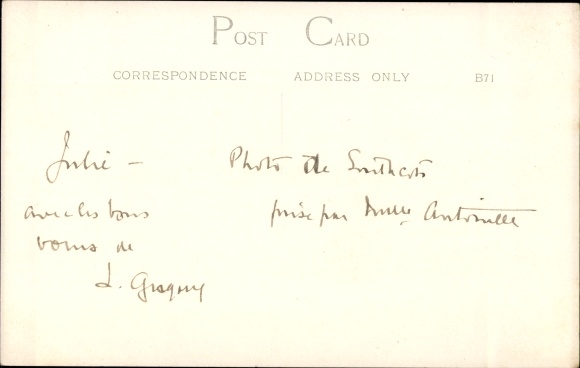 POST CARD
CORRESPONDENCE ADDRESS ONLY B71
Julie –
avec les bons
voeux de
L. Gregory
Photo de Southcots
prise par Mlle Antoinette